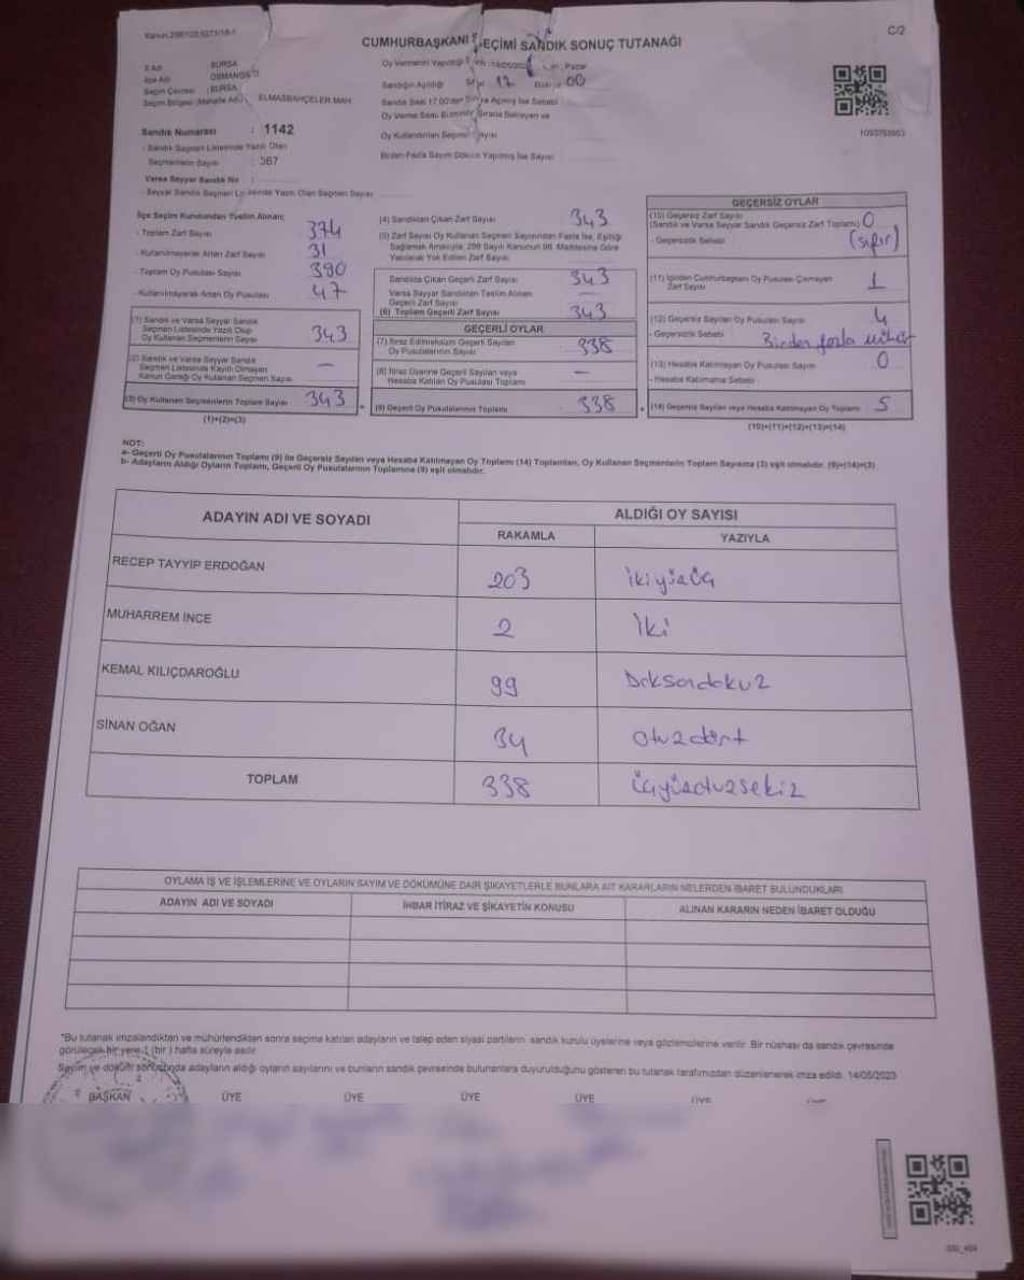 C/2
CUMHURBAŞKANI SEÇİMİ SANDIK SONUÇ TUTANAĞI
İl Adı : BURSA
İlçe Adı : OSMANGAZİ
Seçim Çevresi : BURSA
Seçim Bölgesi (Mahalle Adı) : ELMASBAHÇELER MAH.
Sandık Numarası : 1142
- Sandık Seçmen Listesinde Yazılı Olan
Seçmenlerin Sayısı : 367
Varsa Seyyar Sandık No :
- Seyyar Sandık Seçmen Listesinde Yazılı Olan Seçmen Sayısı
Oy Vermenin Yapıldığı
Pazar
Sandığın Açıldığı Saat 17 00
Oy Kullandırılan Seçmen Sayısı
Birden Fazla Sayım Döküm Yapılmış İse Sayısı
İlçe Seçim Kurulundan Teslim Alınan;
- Toplam Zarf Sayısı 374
- Kullanılmayarak Artan Zarf Sayısı 31
- Toplam Oy Pusulası Sayısı 390
- Kullanılmayarak Artan Oy Pusulası 47
(1) Sandık ve Varsa Seyyar Sandık
Seçmen Listesinde Yazılı Olup
Oy Kullanan Seçmenlerin Sayısı 343
(2) Sandık ve Varsa Seyyar Sandık
Seçmen Listesinde Kayıtlı Olmayan
Kanun Gereği Oy Kullanan Seçmen Sayısı —
(3) Oy Kullanan Seçmenlerin Toplam Sayısı 343
(1)+(2)=(3)
(4) Sandıktan Çıkan Zarf Sayısı 343
(5) Zarf Sayısı Oy Kullanan Seçmen Sayısından Fazla İse, Eşitliği
Sağlamak Amacıyla, 298 Sayılı Kanunun 98. Maddesine Göre
Yakılarak Yok Edilen Zarf Sayısı
Sandıkta Çıkan Geçerli Zarf Sayısı 343
Varsa Seyyar Sandıktan Teslim Alınan
Geçerli Zarf Sayısı —
(6) Toplam Geçerli Zarf Sayısı 343
GEÇERLİ OYLAR
(7) İtiraz Edilmeksizin Geçerli Sayılan
Oy Pusulalarının Sayısı 338
(8) İtiraz Üzerine Geçerli Sayılan veya
Hesaba Katılan Oy Pusulası Toplamı —
(9) Geçerli Oy Pusulalarının Toplamı 338
GEÇERSİZ OYLAR
(10) Geçersiz Zarf Sayısı 0
(Sandık ve Varsa Seyyar Sandık Geçersiz Zarf Toplamı)
- Geçersizlik Sebebi (sıfır)
(11) İçinden Cumhurbaşkanı Oy Pusulası Çıkmayan
Zarf Sayısı 1
(12) Geçersiz Sayılan Oy Pusulası Sayısı 4
- Geçersizlik Sebebi Birden fazla mühür
(13) Hesaba Katılmayan Oy Pusulası Sayısı 0
- Hesaba Katılmama Sebebi
(14) Geçersiz Sayılan veya Hesaba Katılmayan Oy Toplamı 5
(10)+(11)+(12)+(13)=(14)
NOT:
a- Geçerli Oy Pusulalarının Toplamı (9) ile Geçersiz Sayılan veya Hesaba Katılmayan Oy Toplamı (14) Toplamları, Oy Kullanan Seçmenlerin Toplam Sayısına (3) eşit olmalıdır. (9)+(14)=(3)
b- Adayların Aldığı Oyların Toplamı, Geçerli Oy Pusulalarının Toplamına (9) eşit olmalıdır.
ADAYIN ADI VE SOYADI
ALDIĞI OY SAYISI
RAKAMLA YAZIYLA
RECEP TAYYİP ERDOĞAN 203 ikiyüzüç
MUHARREM İNCE 2 iki
KEMAL KILIÇDAROĞLU 99 Doksandokuz
SİNAN OĞAN 34 otuzdört
TOPLAM 338 üçyüzotuzsekiz
OYLAMA İŞ VE İŞLEMLERİNE VE OYLARIN SAYIM VE DÖKÜMÜNE DAİR ŞİKAYETLERLE BUNLARA AİT KARARLARIN NELERDEN İBARET BULUNDUKLARI
ADAYIN ADI VE SOYADI İHBAR İTİRAZ VE ŞİKAYETİN KONUSU ALINAN KARARIN NEDEN İBARET OLDUĞU
*Bu tutanak imzalandıktan ve mühürlendikten sonra seçime katılan adayların ve talep eden siyasi partilerin sandık kurulu üyelerine veya gözlemcilerine verilir. Bir nüshası da sandık çevresinde
görülecek bir yere 1 (bir) hafta süreyle asılır.
Sayım ve döküm sonucunda adayların aldığı oyların sayılarını ve bunların sandık çevresinde bulunanlara duyurulduğunu gösteren bu tutanak tarafımızdan düzenlenerek imza edildi. 14/05/2023
BAŞKAN ÜYE ÜYE ÜYE ÜYE ÜYE